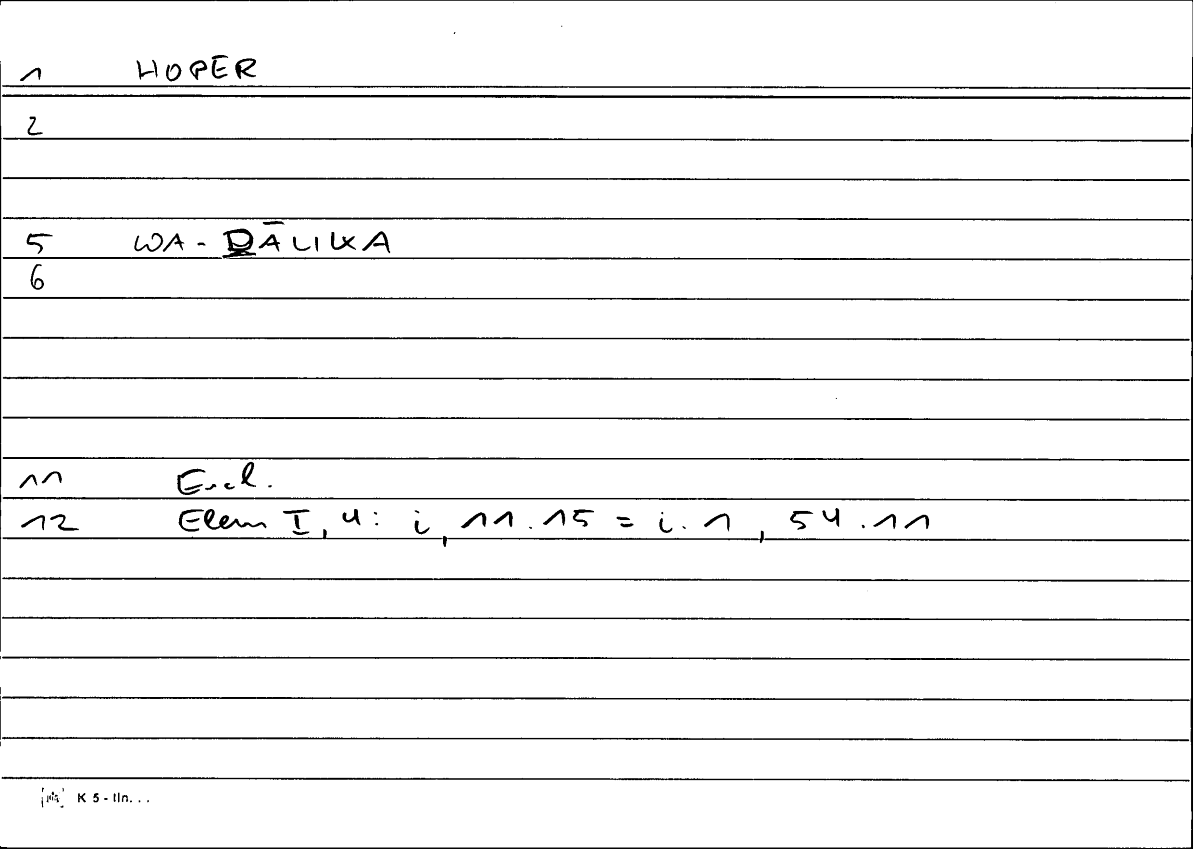 1 HOPER
2
5 WA-ḎĀLIKA
6
11 Eucl.
12 Elem I, 4: i, 11.15 = i. 1, 54.11
K 5 - lin. . .